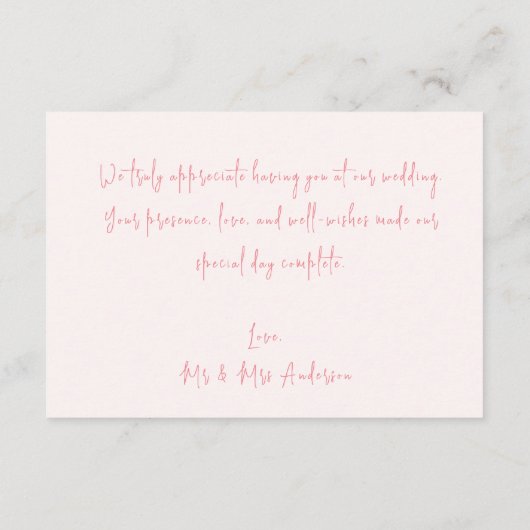 We truly appreciate having you at our wedding.
Your presence, love, and well-wishes made our
special day complete.
Love,
Mr & Mrs Anderson